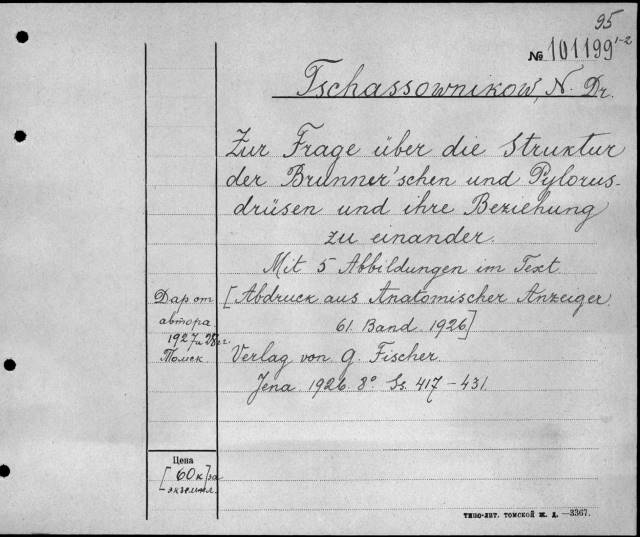 95
№ 101199 1-2
Tschassownikow, N. Dr.
Zur Frage über die Struktur
der Brunner'schen und Pylorus-
drüsen und ihre Beziehung
zu einander.
Mit 5 Abbildungen im Text.
[Abdruck aus Anatomischer Anzeiger
61. Band. 1926]
Verlag von G. Fischer.
Jena 1926. 8° Ss. 417-431.
Дар от
автора
1927 и 28 гг.
Томск
Цена
[60 к.] за
экземпл.
ТИПО-ЛИТ. ТОМСКОЙ Ж. Д. —3367.